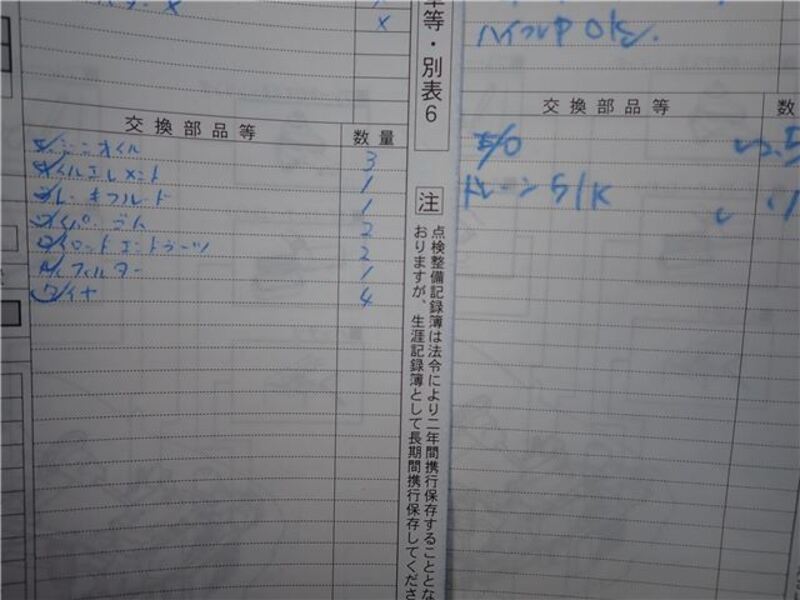 ×
交換部品等 数量
エンジンオイル 3
オイルエレメント 1
ブレーキフルード 1
ワイパーゴム 2
フロントエンドブーツ 2
A/Cフィルター 1
タイヤ 4
等・別表6
注
点検整備記録簿は法令により二年間携行保存することとな
おりますが、生涯記録簿として長期間携行保存してくださ
ハイフレ中 OK.
交換部品等 数
E/O 2.5
ドレーン S/K 1